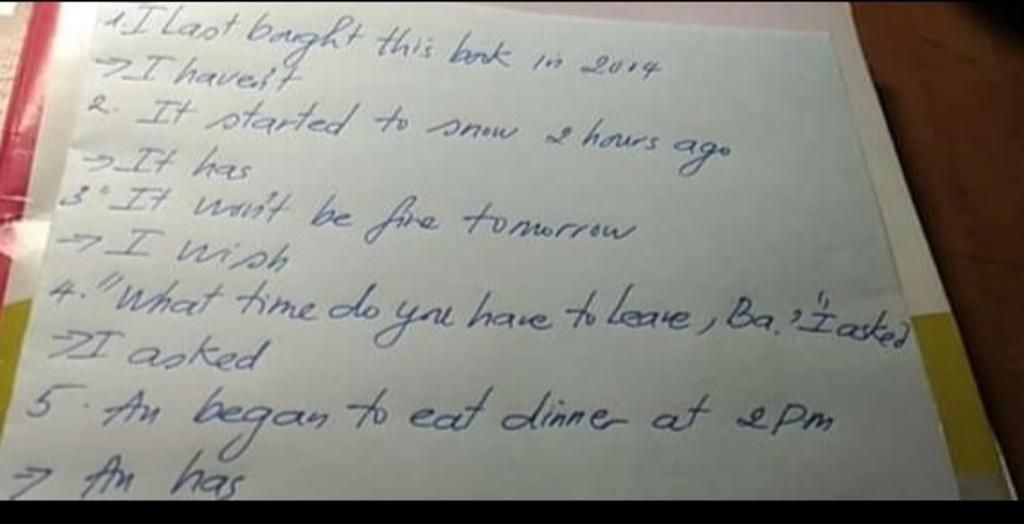 1. I Last bought this book in 2014
→ I haven't
2. It started to snow 2 hours ago
→ It has
3. It won't be fine tomorrow
→ I wish
4. "What time do you have to leave, Ba?" I asked
→ I asked
5. An began to eat dinner at 2pm
→ An has